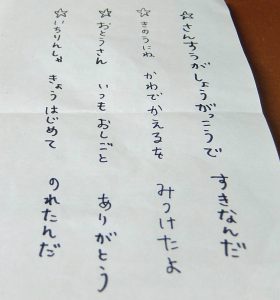 ☆さんすうがしょうがっこうで すきなんだ
☆きのうにね かわでかえるを みつけたよ
☆おとうさん いつもおしごと ありがとう
☆いちりんしゃ きょうはじめて のれたんだ